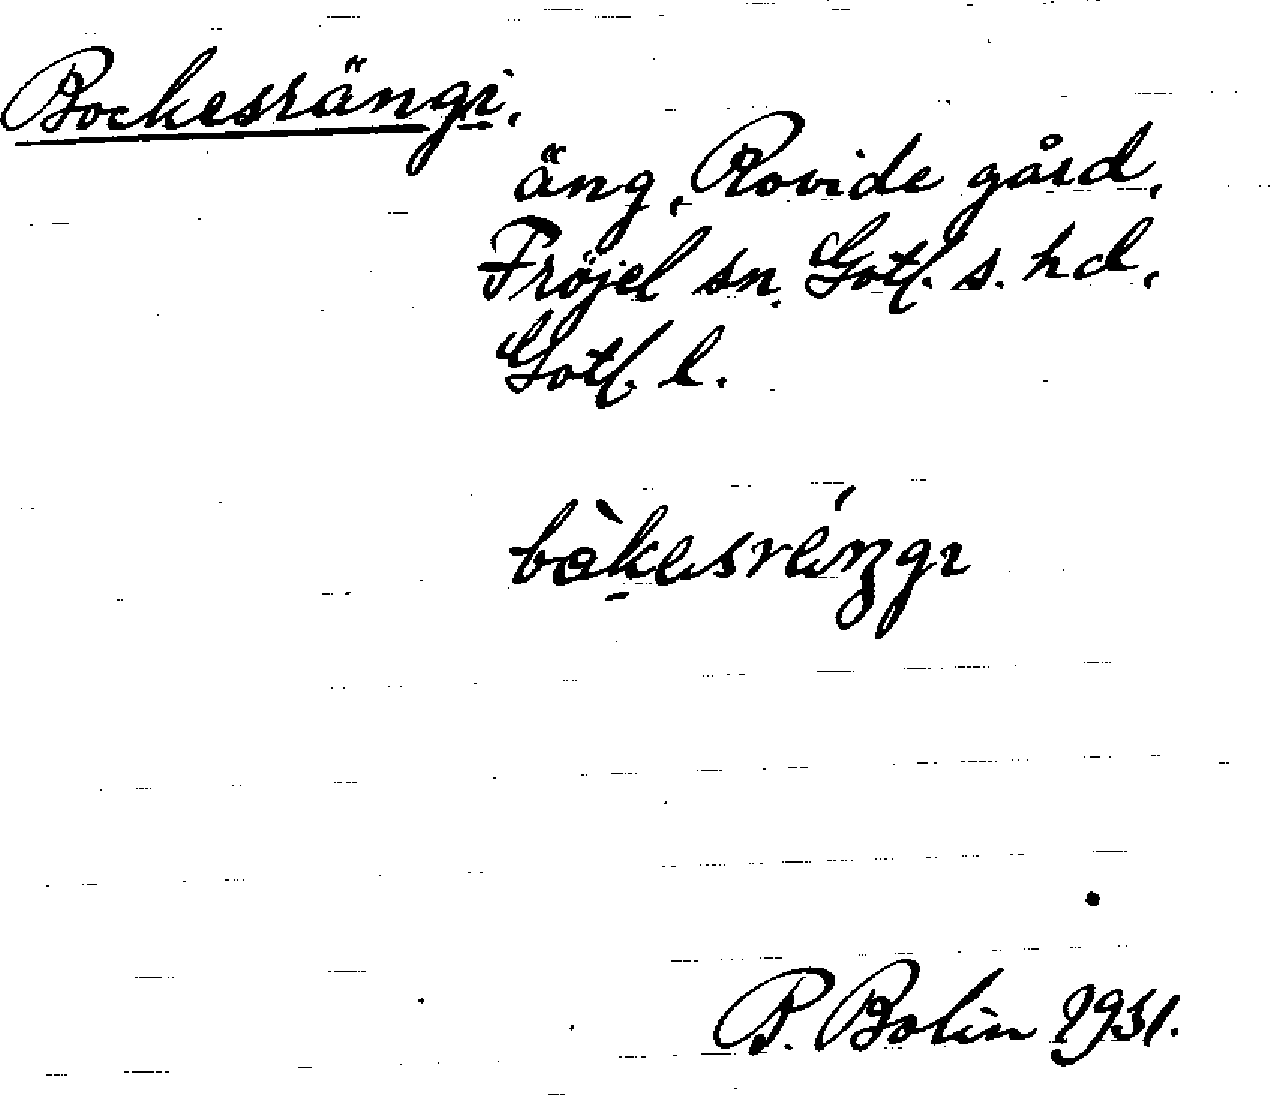 Bockesrängi.
äng, Rovide gård,
Fröjel sn. Gotl. s. hd,
Gotl. l.
bàkesréngi
P. Bolin 1931.